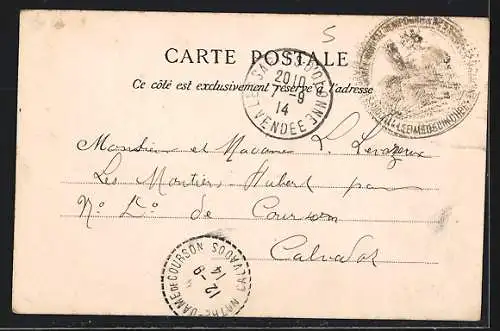 5
CARTE POSTALE
Ce côté est exclusivement réservé à l'adresse
LES SABLES D'OLONNE
20 10
-9
14
VENDÉE
Monsieur et Madame L. Levazeux
Les Moutiers Hubert par
N. D. de Courson
Calvados
NOTRE-DAME DE COURSON
12-9
14
CALVADOS